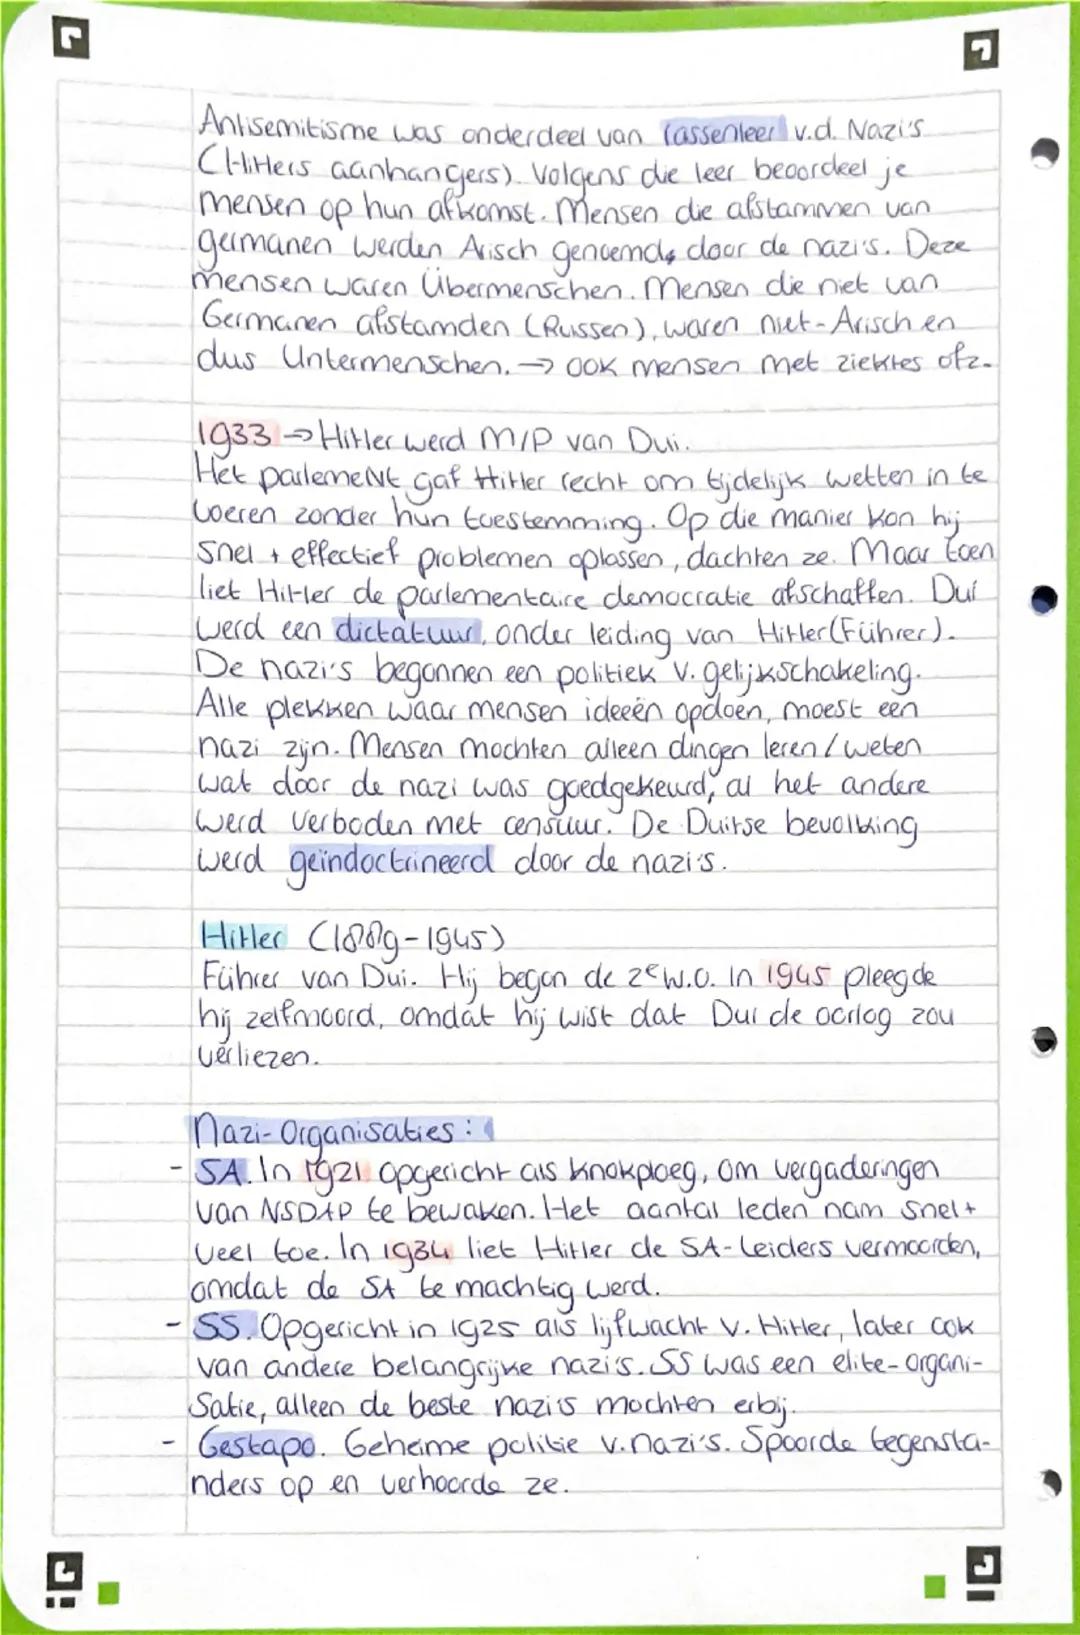 Antisemitisme was onderdeel van rassenleer v.d. Nazi's
(Hitlers aanhangers). Volgens die leer beoordeel je
mensen op hun afkomst. Mensen die afstammen van
germanen werden Arisch genoemd, door de nazi's. Deze
mensen waren Übermenschen. Mensen die niet van
Germanen afstamden (Russen), waren niet-Arisch en
dus Untermenschen. → ook mensen met ziektes ofz.
1933 → Hitler werd M/P van Dui.
Het parlement gaf Hitler recht om tijdelijk wetten in te
voeren zonder hun toestemming. Op die manier kon hij
snel + effectief problemen oplossen, dachten ze. Maar toen
liet Hitler de parlementaire democratie afschaffen. Dui
werd een dictatuur, onder leiding van Hitler (Führer).
De nazi's begonnen een politiek v. gelijkschakeling.
Alle plekken waar mensen ideeën opdoen, moest een
nazi zijn. Mensen mochten alleen dingen leren / weten
wat door de nazi was goedgekeurd, al het andere
werd verboden met censuur. De Duitse bevolking
werd geïndoctrineerd door de nazi's.
Hitler (1889-1945)
Führer van Dui. Hij begon de 2e W.O. In 1945 pleegde
hij zelfmoord, omdat hij wist dat Dui de oorlog zou
verliezen.
Nazi-Organisaties:
- SA. In 1921 opgericht als knokploeg, om vergaderingen
van NSDAP te bewaken. Het aantal leden nam snel +
veel toe. In 1934 liet Hitler de SA-Leiders vermoorden,
omdat de SA te machtig werd.
- SS. Opgericht in 1925 als lijfwacht v. Hitler, later ook
van andere belangrijke nazi's. SS was een elite-organi-
satie, alleen de beste nazi's mochten erbij.
- Gestapo. Geheime politie v. nazi's. Spoorde tegensta-
nders op en verhoorde ze.